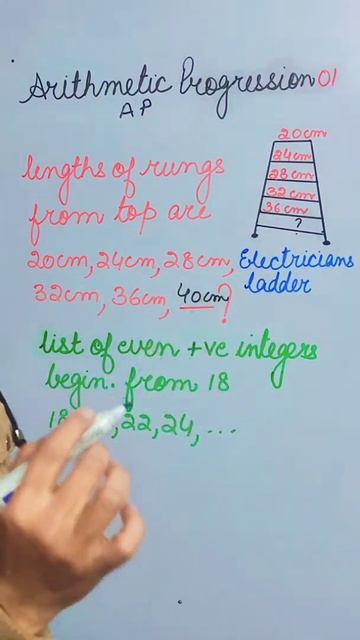 Arithmetic Progression 01
AP
20cm
24cm
28cm
32cm
36cm
?
Electricians
ladder
lengths of rungs
from top are
20cm, 24cm, 28cm,
32cm, 36cm, 40cm?
list of even +ve integers
begin. from 18
18 , 22, 24, ...